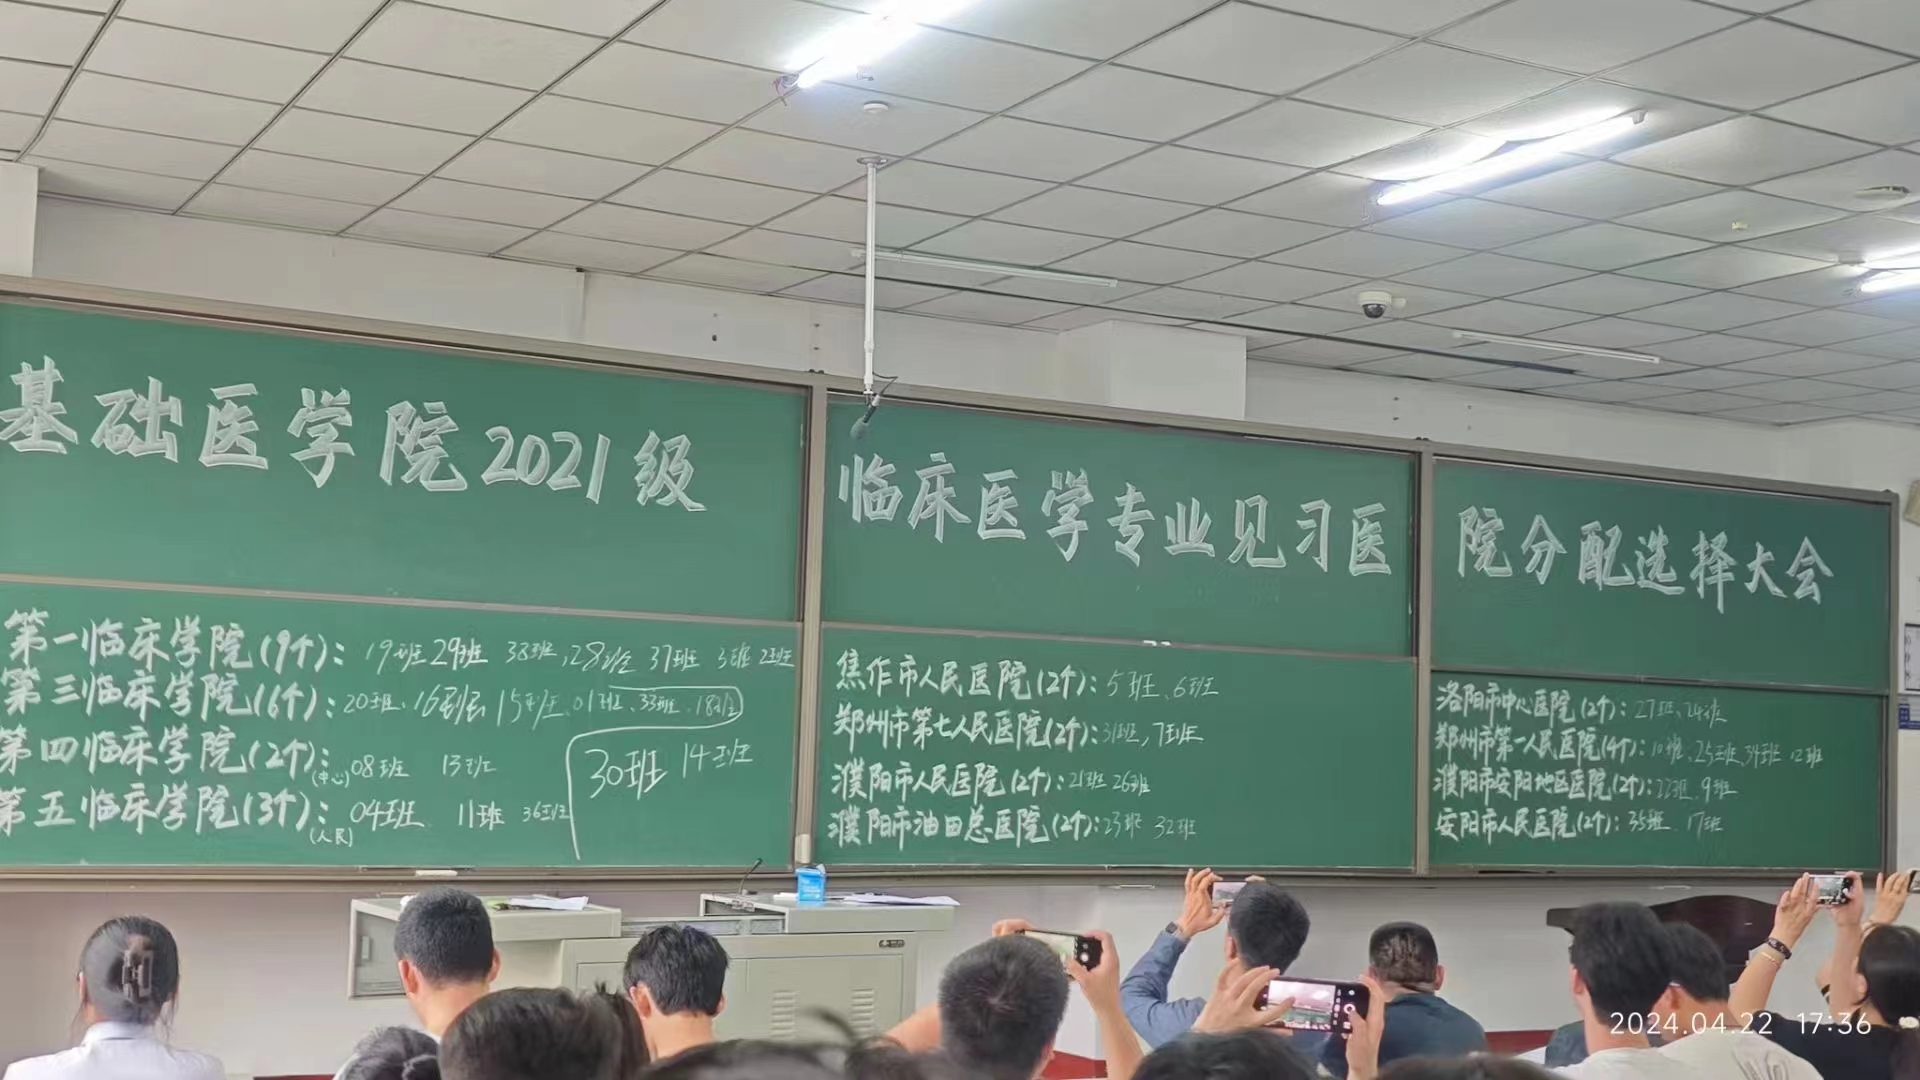 基础医学院2021级 临床医学专业见习医院分配选择大会
第一临床学院(9个): 19班 29班 38班、28班 37班 3班 2班
第三临床学院(6个): 20班、16班 15班、01班、33班、18班
30班 14班
第四临床学院(2个):(中心) 08班 13班
第五临床学院(3个):(人民) 04班 11班 36班
焦作市人民医院(2个): 5班、6班
郑州市第七人民医院(2个): 31班, 7班
濮阳市人民医院(2个): 21班 26班
濮阳市油田总医院(2个): 23班 32班
洛阳市中心医院(2个): 27班、24班
郑州市第一人民医院(4个): 10班、25班、34班 12班
濮阳市安阳地区医院(2个): 22班、9班
安阳市人民医院(2个): 35班、17班
2024.04.22 17:36